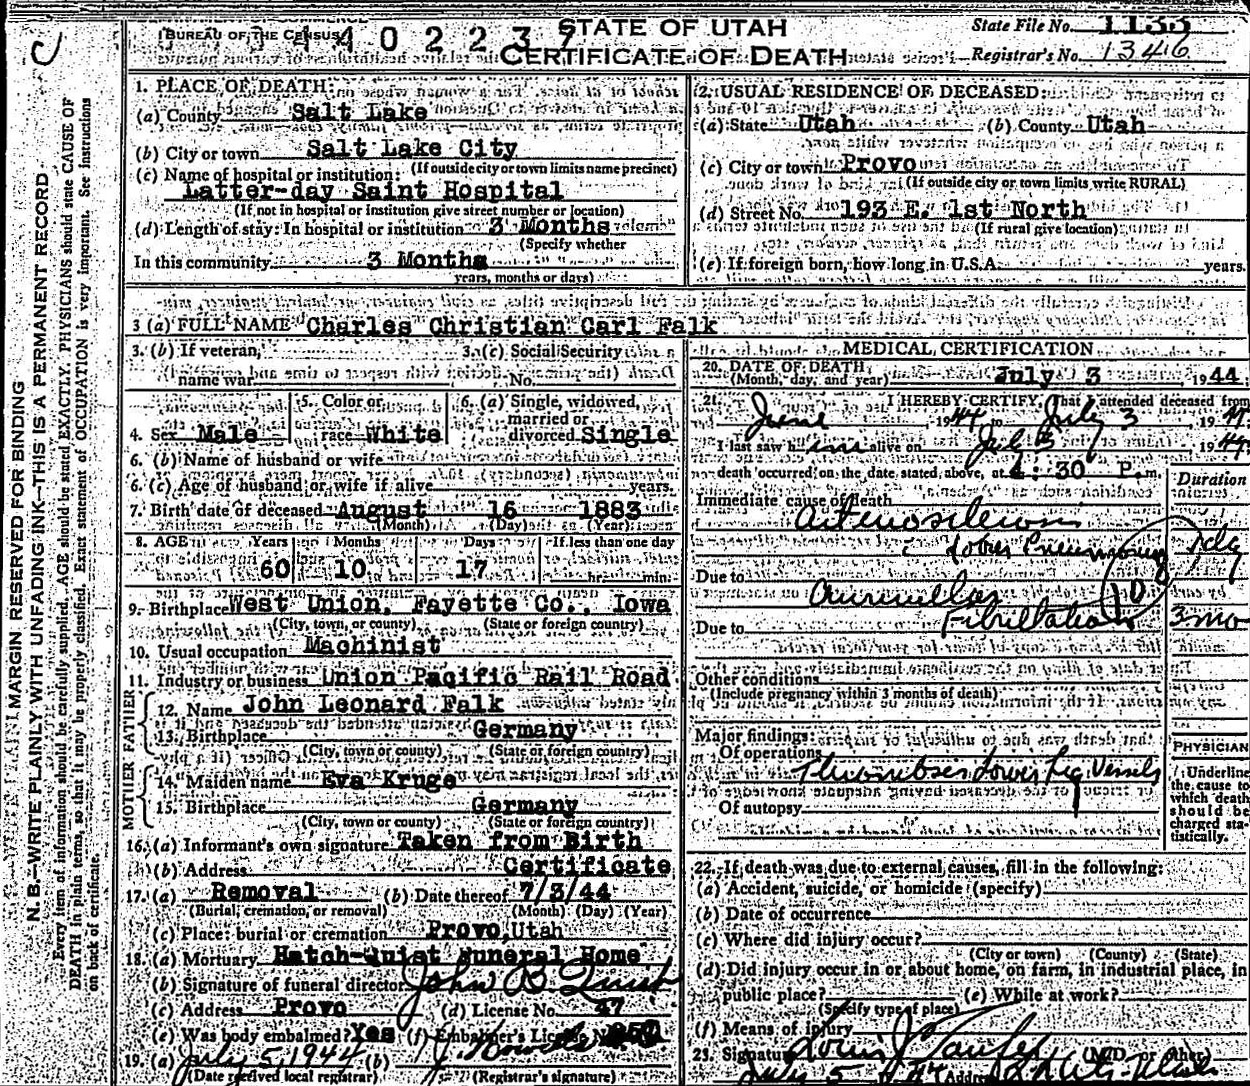 BUREAU OF THE CENSUS
STATE OF UTAH
CERTIFICATE OF DEATH
State File No. 1133
Registrar's No. 1346
MARGIN RESERVED FOR BINDING
N. B.—WRITE PLAINLY WITH UNFADING INK—THIS IS A PERMANENT RECORD.
Every item of information should be carefully supplied. AGE should be stated EXACTLY. PHYSICIANS should state CAUSE OF
DEATH in plain terms, so that it may be properly classified. Exact statement of OCCUPATION is very important. See instructions
on back of certificate.
1. PLACE OF DEATH:
(a) County Salt Lake
(b) City or town Salt Lake City
(If outside city or town limits name precinct)
(c) Name of hospital or institution:
Latter-day Saint Hospital
(If not in hospital or institution give street number or location)
(d) Length of stay: In hospital or institution 3 Months
(Specify whether
In this community 3 Months
years, months or days)
2. USUAL RESIDENCE OF DECEASED:
(a) State Utah (b) County Utah
(c) City or town Provo
(If outside city or town limits write RURAL)
(d) Street No. 193 E. 1st North
(If rural give location)
(e) If foreign born, how long in U.S.A. years.
3 (a) FULL NAME Charles Christian Carl Falk
3. (b) If veteran, name war
3. (c) Social Security No.
4. Sex Male
5. Color or race White
6. (a) Single, widowed, married or divorced Single
6. (b) Name of husband or wife
6. (c) Age of husband or wife if alive years.
7. Birth date of deceased August 16 1883
(Month) (Day) (Year)
8. AGE Years Months Days If less than one day
60 10 17 hr. min.
9. Birthplace West Union, Fayette Co., Iowa
(City, town, or county) (State or foreign country)
10. Usual occupation Machinist
11. Industry or business Union Pacific Rail Road
FATHER
12. Name John Leonard Falk
13. Birthplace Germany
(City, town or county) (State or foreign country)
MOTHER
14. Maiden name Eva Kruge
15. Birthplace Germany
(City, town or county) (State or foreign country)
16. (a) Informant's own signature Taken from Birth
(b) Address Certificate
17. (a) Removal (b) Date thereof 7/3/44
(Burial, cremation, or removal) (Month) (Day) (Year)
(c) Place: burial or cremation Provo, Utah
18. (a) Mortuary Hatch-Quist Funeral Home
(b) Signature of funeral director John B. Quist
(c) Address Provo (d) License No. 47
(e) Was body embalmed? Yes (f) Embalmer's License No.
19. (a) July 5, 1944 (b)
(Date received local registrar) (Registrar's signature)
MEDICAL CERTIFICATION
20. DATE OF DEATH
(Month, day, and year) July 3, 1944.
21. I HEREBY CERTIFY, That I attended deceased from
June 1944 to July 3 1944
I last saw him alive on July 3 1944,
death occurred on the date stated above, at 4:30 P.m.
Duration
Immediate cause of death
Arteriosclerosis
Lobar Pneumonia
Due to Auricular
Fibrillation 3 mo
Due to
Other conditions
(Include pregnancy within 3 months of death)
Major findings:
Of operations Thrombosis Lower Leg Vessels
Of autopsy
PHYSICIAN
Underline the cause to which death should be charged statistically.
22. If death was due to external causes, fill in the following:
(a) Accident, suicide, or homicide (specify)
(b) Date of occurrence
(c) Where did injury occur?
(City or town) (County) (State)
(d) Did injury occur in or about home, on farm, in industrial place, in
public place? (e) While at work?
(Specify type of place)
(f) Means of injury
23. Signature Louis J. Taufer (M.D. or other)
July 5